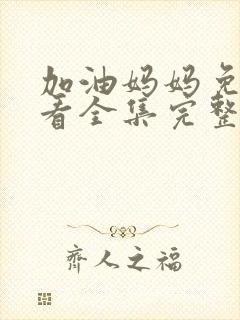 加油妈妈免
看全集完整
齊人之福